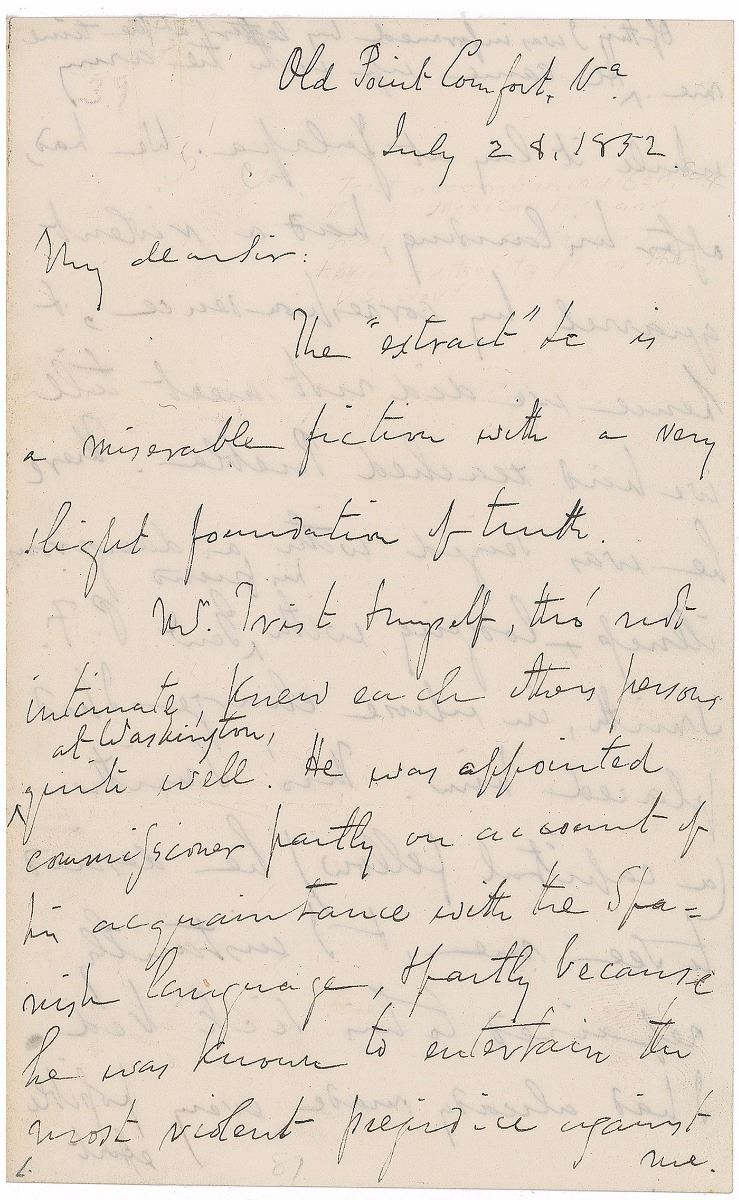 Old Point Comfort, Va
July 28, 1852.
My dear Sir:
The "extract" &c is
a miserable fiction with a very
slight foundation of truth.
Mr. Trist & myself, tho' not
intimate, knew each others persons
at Washington,
quite well. He was appointed
commissioner partly on account of
his acquaintance with the Spa=
nish language, & partly because
he was known to entertain the
most violent prejudice against
me.
1.